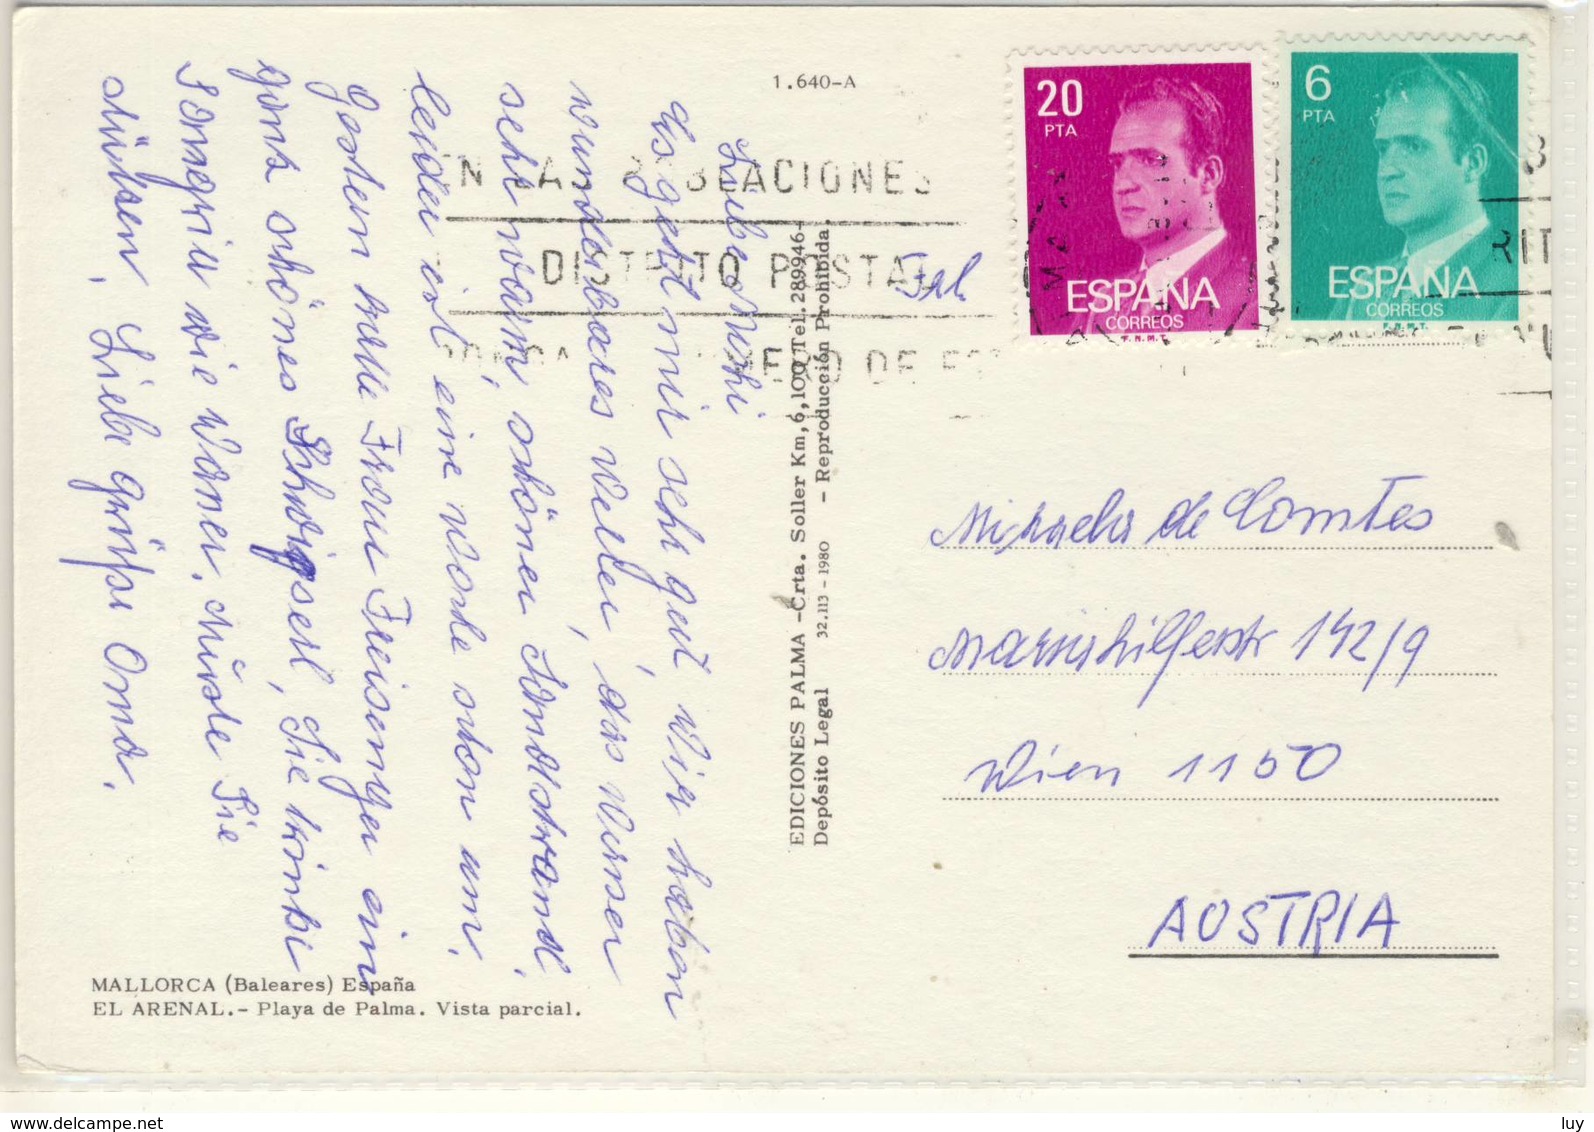 1.640-A
Liebe Muki
Es geht mir sehr gut, wir haben
wunderbares Wetter, das Wasser
sehr warm, schöner Sandstrand,
leider ist eine Woche schon um.
Gestern hatte Frau ein
ganz schönes Sie trinkt
Sangria wie Wasser,
Liebe Grüße Oma.
MALLORCA (Baleares) España
EL ARENAL.- Playa de Palma. Vista parcial.
EDICIONES PALMA -Crta. Soller Km,6,100 Tel.289946-
Depósito Legal 32.113 - 1980 - Reproducción Prohibida.
EN LAS POBLACIONES
DISTRITO POSTAL
20
PTA
ESPAÑA
CORREOS
F.N.M.T.
6
PTA
ESPAÑA
CORREOS
F.N.M.T.
Frl.
Michaela de Comtes
Mariahilferstr 192/9
Wien 1150
AUSTRIA
www.delcampe.net
luy